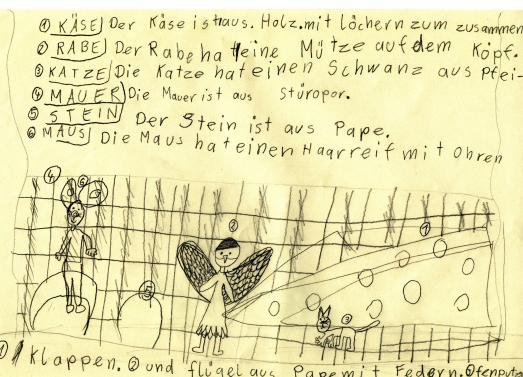 ① KÄSE Der Käse ist aus. Holz.mit löchern zum zusammen
② RABE Der Rabe hat eine Mütze auf dem Kopf.
③ KATZE Die Katze hat einen Schwanz aus Pfei-
④ MAUER Die Mauer ist aus Stüropor.
⑤ STEIN Der Stein ist aus Pape.
⑥ MAUS Die Maus hat einen Haarreif mit Ohren
④
⑥
②
①
⑤
③
① Klappen. ② und flügel aus Pape mit Federn. Ofenputz